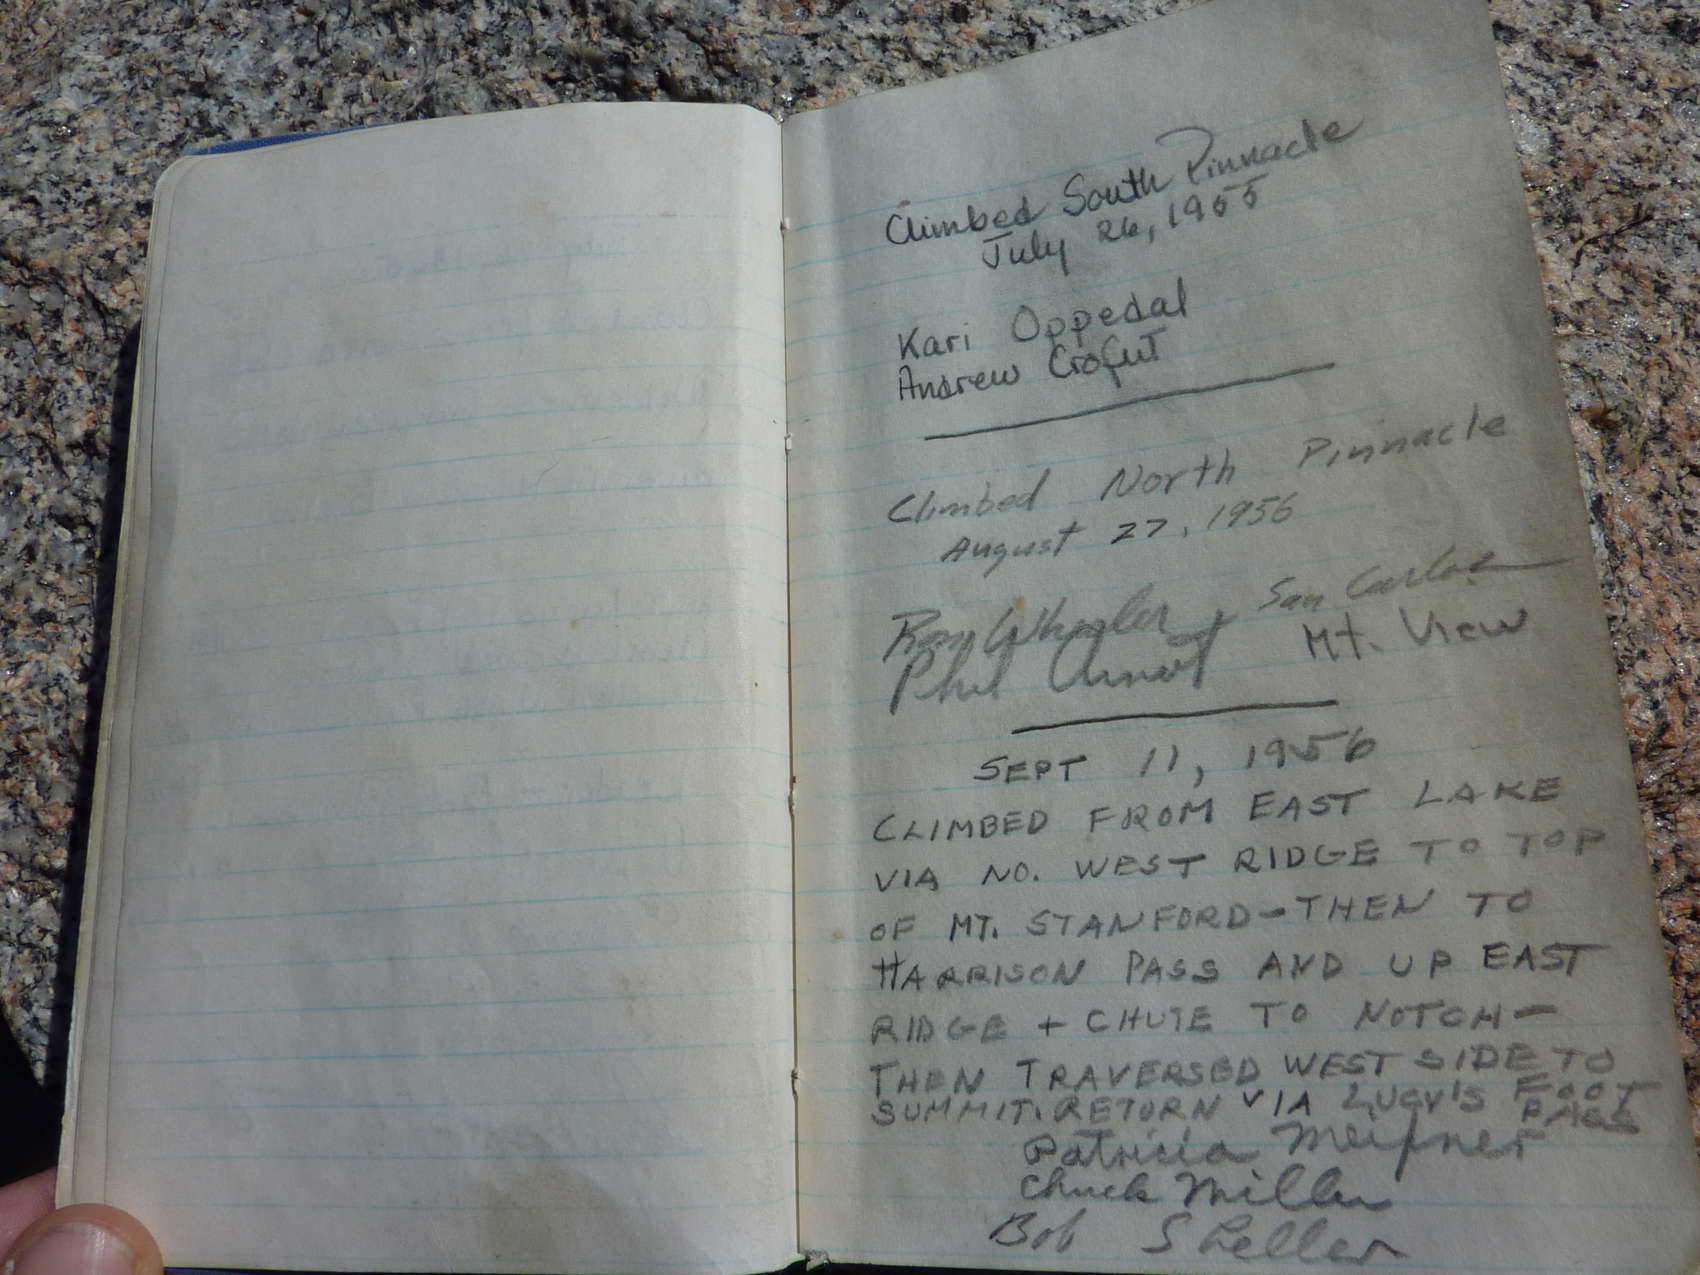 Climbed South Pinnacle
July 26, 1955
Kari Oppedal
Andrew Crofut
Climbed North Pinnacle
August 27, 1956
Wheeler San Carlos
Phil Arnot Mt. View
SEPT 11, 1956
CLIMBED FROM EAST LAKE
VIA NO. WEST RIDGE TO TOP
OF MT. STANFORD-THEN TO
HARRISON PASS AND UP EAST
RIDGE + CHUTE TO NOTCH-
THEN TRAVERSED WEST SIDE TO
SUMMIT. RETURN VIA LUCY'S FOOT
PASS
Patricia
Chuck Miller
Bob Sheller